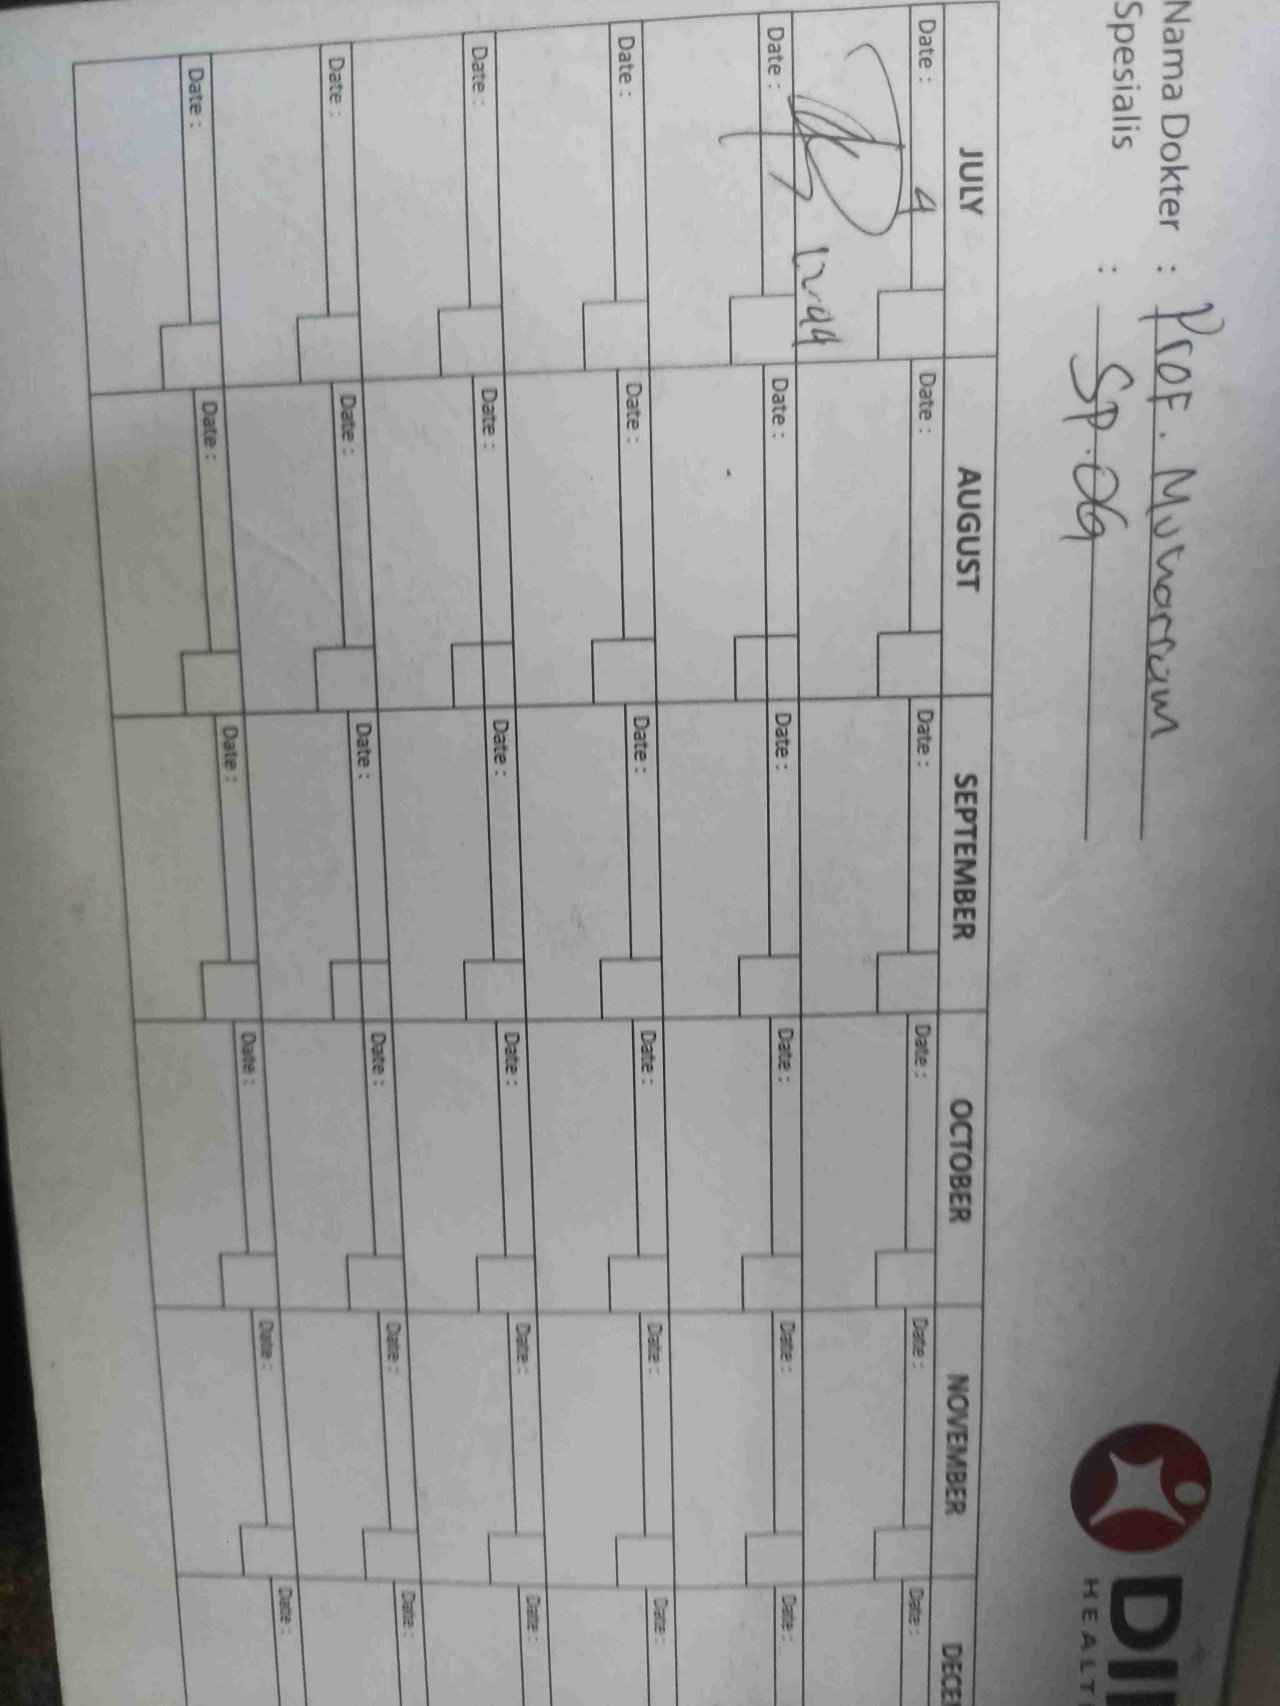 Nama Dokter : Prof. Muharram
Spesialis : SP.OG
DI
HEALT
JULY AUGUST SEPTEMBER OCTOBER NOVEMBER DECE
Date : 4 Date : Date : Date : Date : Date :
12.44
Date : Date : Date : Date : Date : Date :
Date : Date : Date : Date : Date : Date :
Date : Date : Date : Date : Date : Date :
Date : Date : Date : Date : Date : Date :
Date : Date : Date : Date : Date : Date :